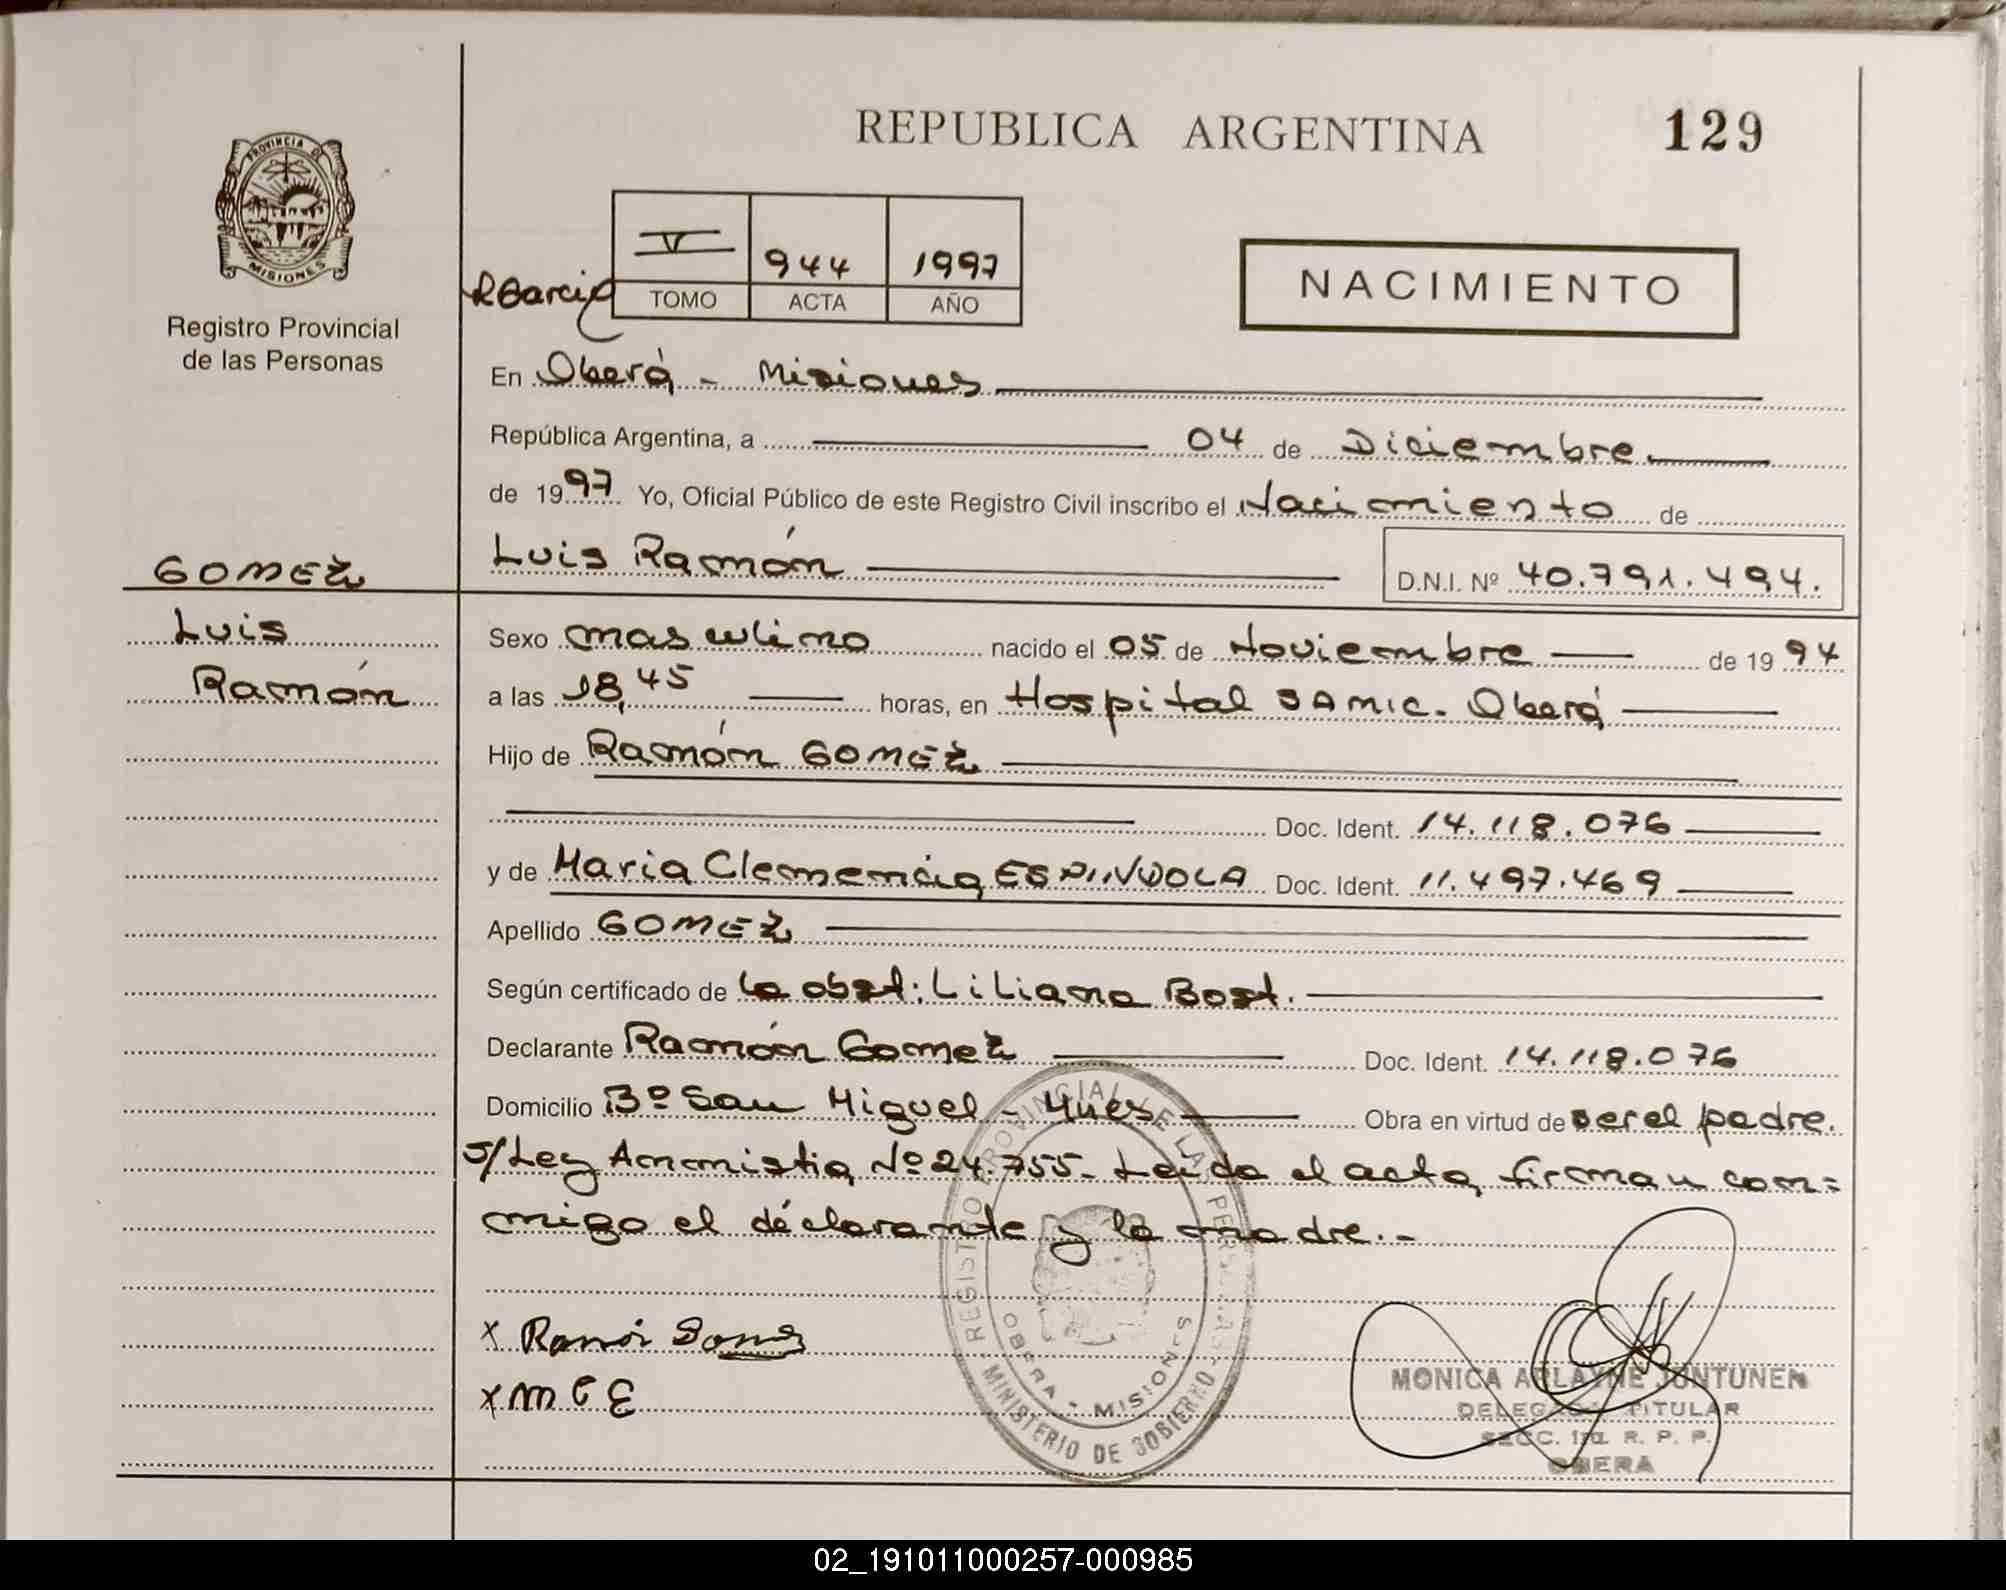 REPUBLICA ARGENTINA
129
PROVINCIA DE
MISIONES
Registro Provincial
de las Personas
V 944 1997
TOMO ACTA AÑO
RGarcia
NACIMIENTO
En Oberá - Misiones
República Argentina, a 04 de Diciembre
de 1997 Yo, Oficial Público de este Registro Civil inscribo el Nacimiento de
Luis Ramón D.N.I. Nº 40.791.494.
GOMEZ
Luis
Ramón
Sexo masculino nacido el 05 de Noviembre de 1994
a las 18,45 horas, en Hospital SAMIC. Oberá
Hijo de Ramón GOMEZ
Doc. Ident. 14.118.076
y de Maria Clemencia ESPINDOLA Doc. Ident. 11.497.469
Apellido GOMEZ
Según certificado de la obst: Liliana Bost.
Declarante Ramón Gomez Doc. Ident. 14.118.076
Domicilio Bº San Miguel - Mnes Obra en virtud de ser el padre.
S/Ley Amnistia Nº 24.755- Leida el acta, firman con=
migo el déclarante y la madre.-
x Ramón Gomez
x M C E
REGISTRO PROVINCIAL DE LAS PERSONAS
MINISTERIO DE GOBIERNO
OBERA - MISIONES
MONICA ARLAYNE JUNTUNEN
DELEGADA TITULAR
SECC. 1ra. R. P. P.
OBERA
02_191011000257-000985